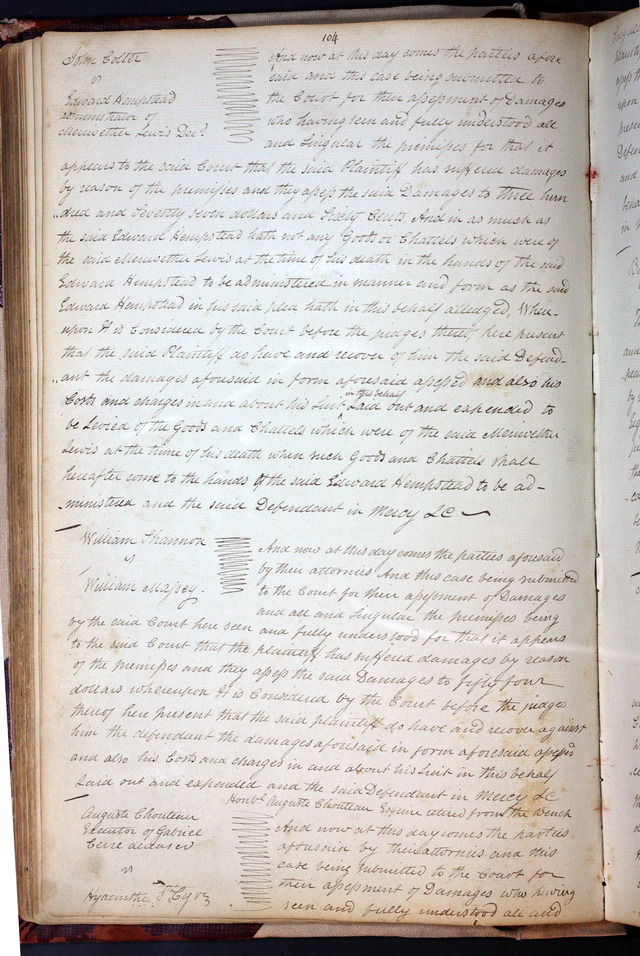 104
John Colter
vs
Edward Hempstead
administrator of
Meriwether Lewis Decd.
And now at this day comes the parties afore
said and this case being submitted to
the Court for their assessment of Damages
who having seen and fully understood all
and Singular the premises for that it
appears to the said Court that the said Plaintiff has suffered damages
by reason of the premises and they assess the said Damages to three hun
dred and Seventy seven dollars and Sixty Cents And in as much as
the said Edward Hempstead hath not any Goods or Chattels which were of
the said Meriwether Lewis at the time of his death in the hands of the said
Edward Hempstead to be administered in manner and form as the said
Edward Hempstead in his said plea hath in this behalf alledged, Where-
upon It is Considered by the Court before the judges thereof here present
that the said Plaintiff do have and recover of him the said Defend-
ant the damages aforesaid in form aforesaid assessed and also his
Costs and charges in and about his Suit in this behalf Laid out and expended to
be Levied of the Goods and Chattels which were of the said Meriwether
Lewis at the time of his death when such Goods and Chattels shall
hereafter come to the hands of the said Edward Hempstead to be ad-
ministered and the said Defendant in Mercy &C
William Shannon
vs
William Massey.
And now at this day comes the parties aforesaid
by their attornies And this case being submitted
to the Court for their assessment of Damages
and all and Singular the premises being
by the said Court here seen and fully understood for that it appears
to the said Court that the plaintiff has suffered damages by reason
of the premises and they assess the said Damages to fifty four
dollars whereupon It is Considered by the Court before the judges
thereof here present that the said plaintiff do have and recover against
him the defendant the damages aforesaid in form aforesaid assessed
and also his Costs and charges in and about his Suit in this behalf
Laid out and expended and the said Defendant in Mercy &C
Honble. Auguste Chouteau Esquire retired from the Bench
Auguste Chouteau
Executor of Gabriel
Cerre deceased
vs
Hyacinthe St Cyr
And now at this day comes the parties
aforesaid by their attornies and this
case being submitted to the Court for
their assessment of Damages who having
seen and fully understood all and